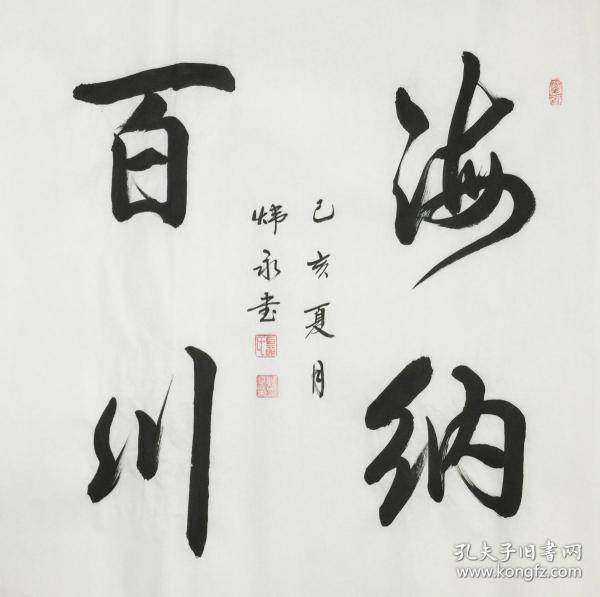 海纳
百川
己亥夏月
炜永书
孔夫子旧书网
www.kongfz.com